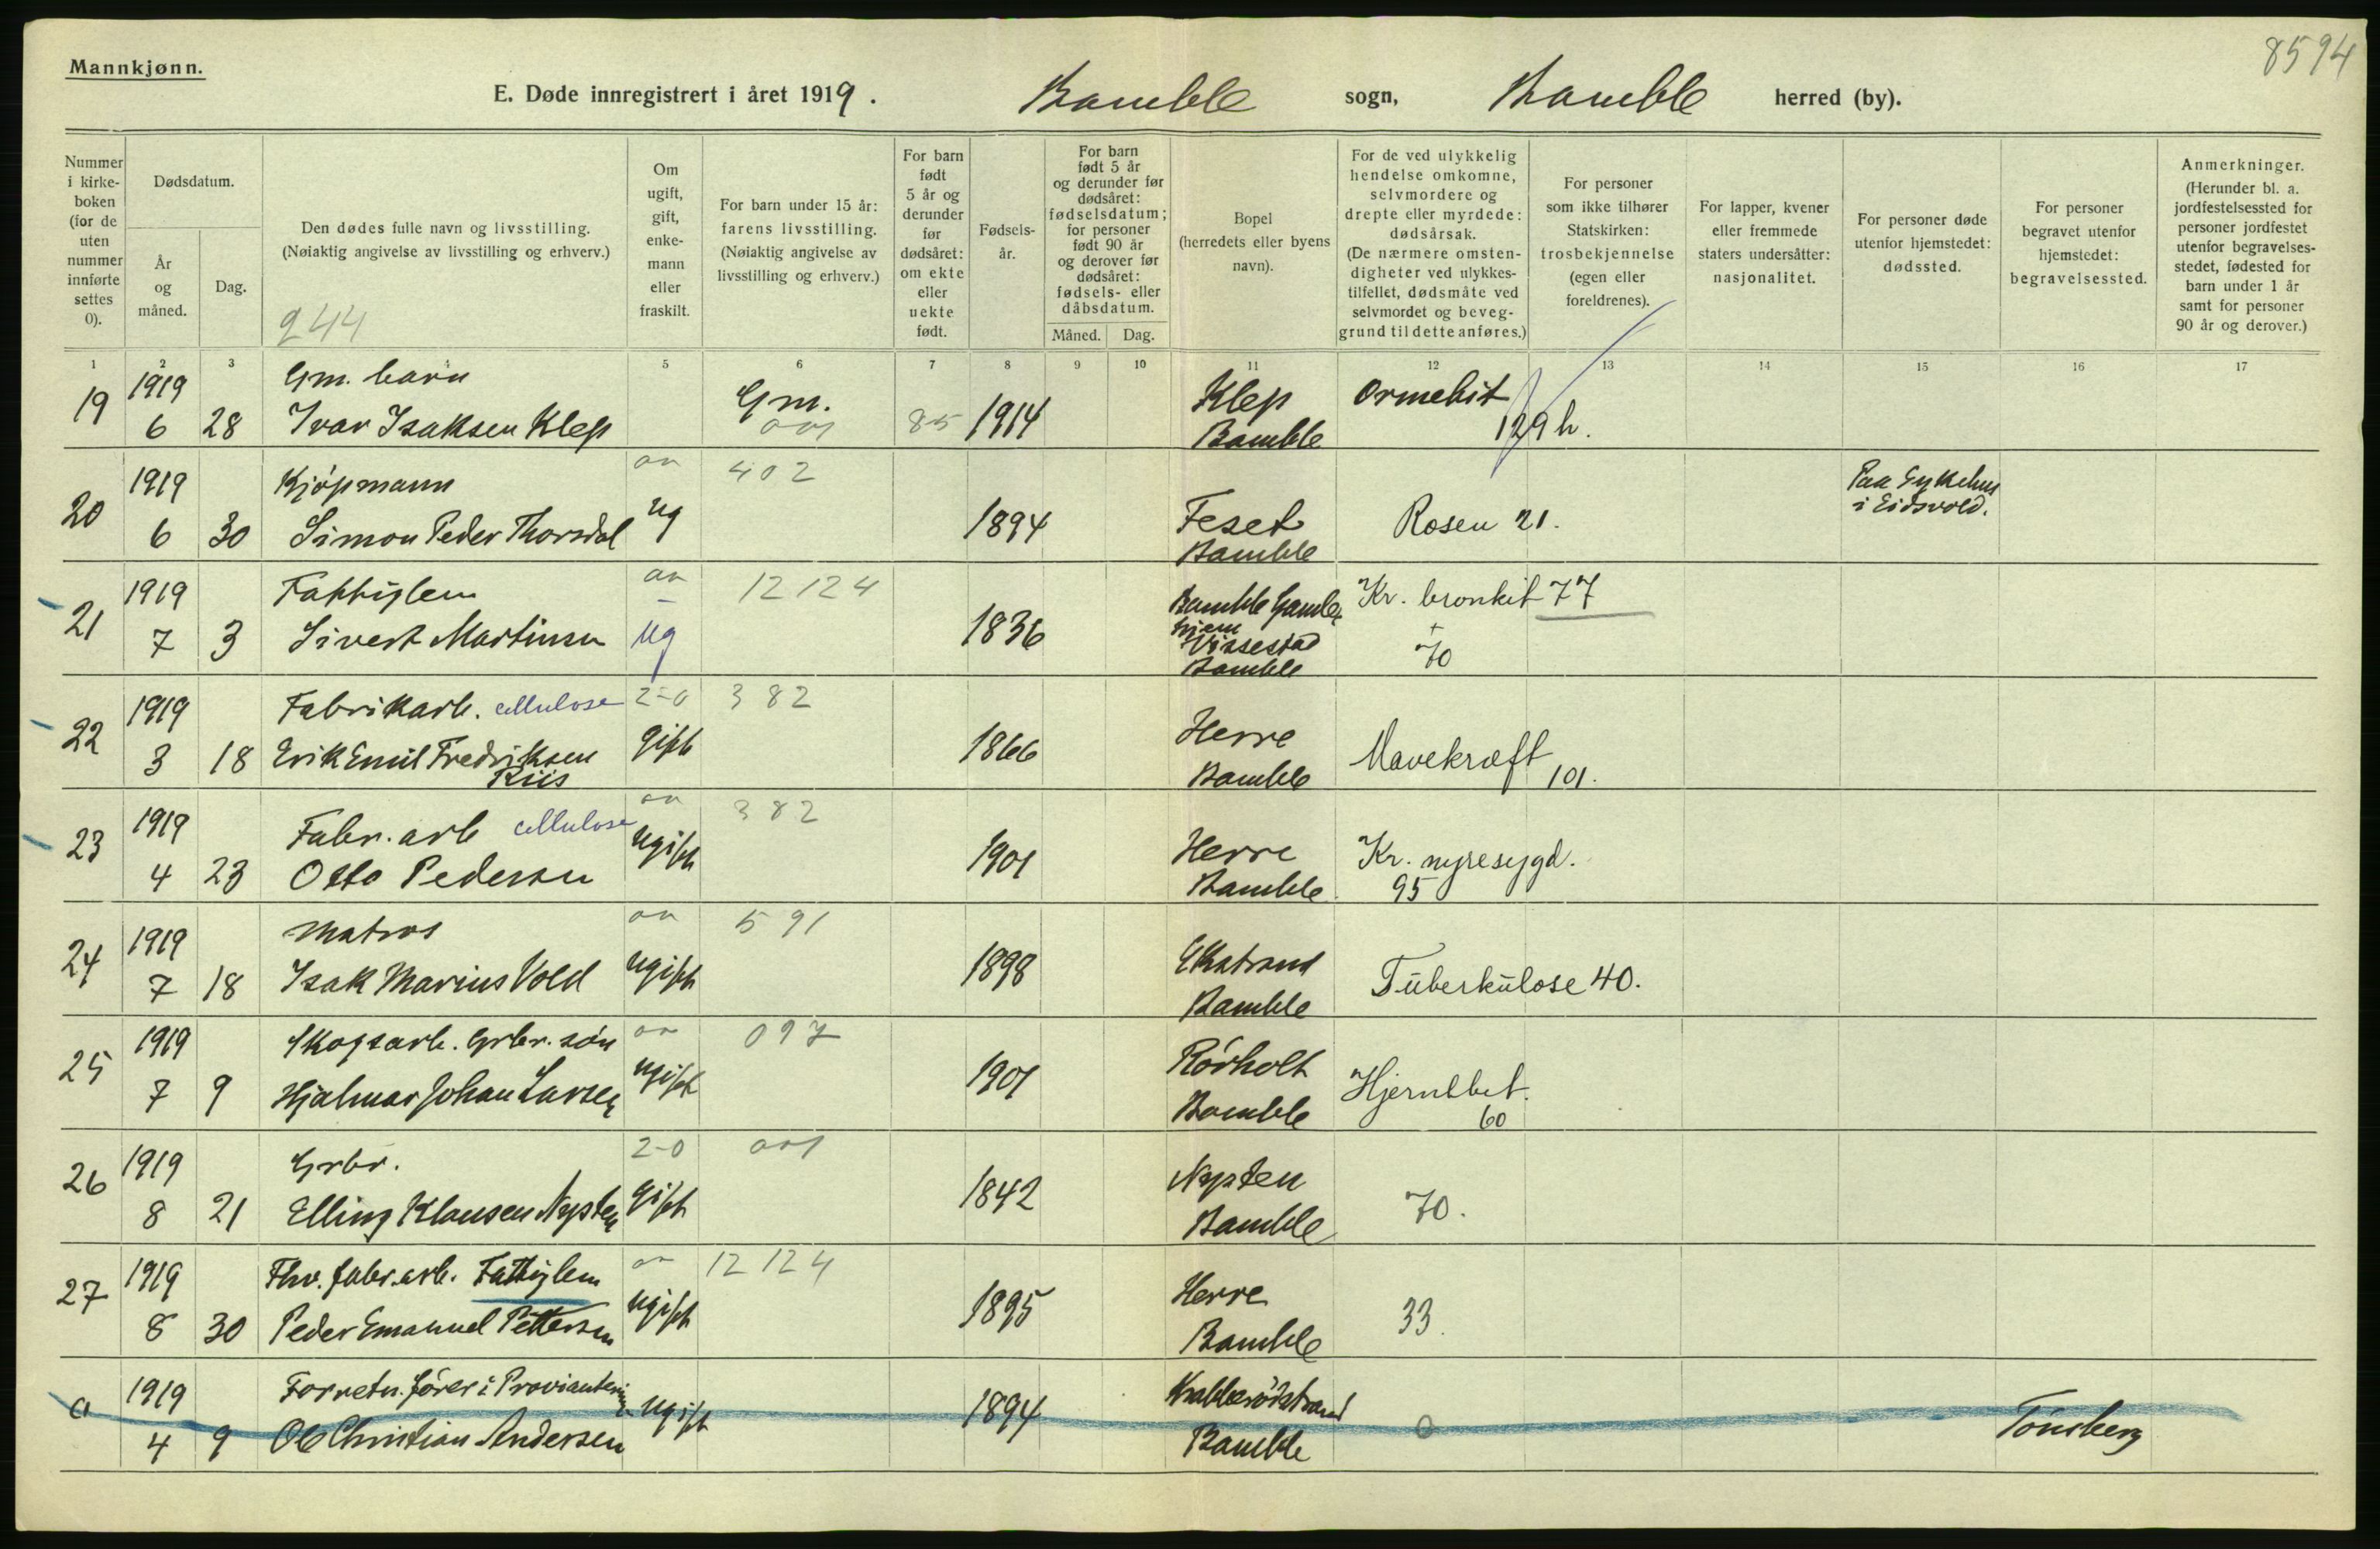 Mannkjønn.
8594
E. Døde innregistrert i året 1919. Bamble sogn, Bamble herred (by).
Nummer i kirke-boken (for de uten nummer innførte settes 0).
Dødsdatum.
År og måned.
Dag.
Den dødes fulle navn og livsstilling.
(Nøiaktig angivelse av livsstilling og erhverv.)
244
Om ugift, gift, enke-mann eller fraskilt.
For barn under 15 år: farens livsstilling.
(Nøiaktig angivelse av livsstilling og erhverv.)
For barn født 5 år og derunder før dødsåret: om ekte eller uekte født.
Fødsels-år.
For barn født 5 år og derunder før dødsåret: fødselsdatum; for personer født 90 år og derover før dødsåret: fødsels- eller dåbsdatum.
Måned. Dag.
Bopel (herredets eller byens navn).
For de ved ulykkelig hendelse omkomne, selvmordere og drepte eller myrdede: dødsårsak.
(De nærmere omsten-digheter ved ulykkes-tilfellet, dødsmåte ved selvmordet og beveg-grund til dette anføres.)
For personer som ikke tilhører Statskirken: trosbekjennelse (egen eller foreldrenes).
For lapper, kvener eller fremmede staters undersåtter: nasjonalitet.
For personer døde utenfor hjemstedet: dødssted.
For personer begravet utenfor hjemstedet: begravelsessted.
Anmerkninger.
(Herunder bl. a. jordfestelsessted for personer jordfestet utenfor begravelses-stedet, fødested for barn under 1 år samt for personer 90 år og derover.)
1 2 3 5 6 7 8 9 10 11 12 13 14 15 16 17
19 1919 Gm. barn Gm. Klep Ormebit
6 28 Ivar Isaksen Klep 85 1914 Bamble 129 h.
20 1919 Kjøpmann 402 Paa Sykehus i Eidsvold.
6 30 Simon Peder Thorsdal ug 1894 Feset Bamble Rosen 21.
21 1919 Fattiglem 12 124 Bamble Gamlehjem Kr. bronkit 77
7 3 Sivert Martinsen ug 1836 Vissestad Bamble + 70
22 1919 Fabrikarb. cellulose 2-0 382 Herre
3 18 Erik Emil Fredriksen Riis gift 1866 Bamble Mavekræft 101.
23 1919 Fabr. arb cellulose 382 Herre Kr. nyresygd.
4 23 Otto Pedersen ugift 1901 Bamble 95
24 1919 Matros 591
7 18 Isak Marius Vold ugift 1898 Bamble Tuberkulose 40.
25 1919 Skogsarb. Grbr. søn 097 Rörholt
7 9 Hjalmar Johan Larsen ugift 1901 Bamble Hjernebet. 60
26 1919 Grbr. 2-0 Nysten
8 21 Elling Klausen Nysten gift 1842 Bamble 70.
27 1919 Fhv. fabr. arb. Fattiglem 12 124 Herre
8 30 Peder Emanuel Pettersen ugift 1895 Bamble 33.
0 1919 Forretn. fører i Proviantering Krabberødstrand
4 9 Ole Christian Andersen ugift 1894 Bamble 0 Tönsberg